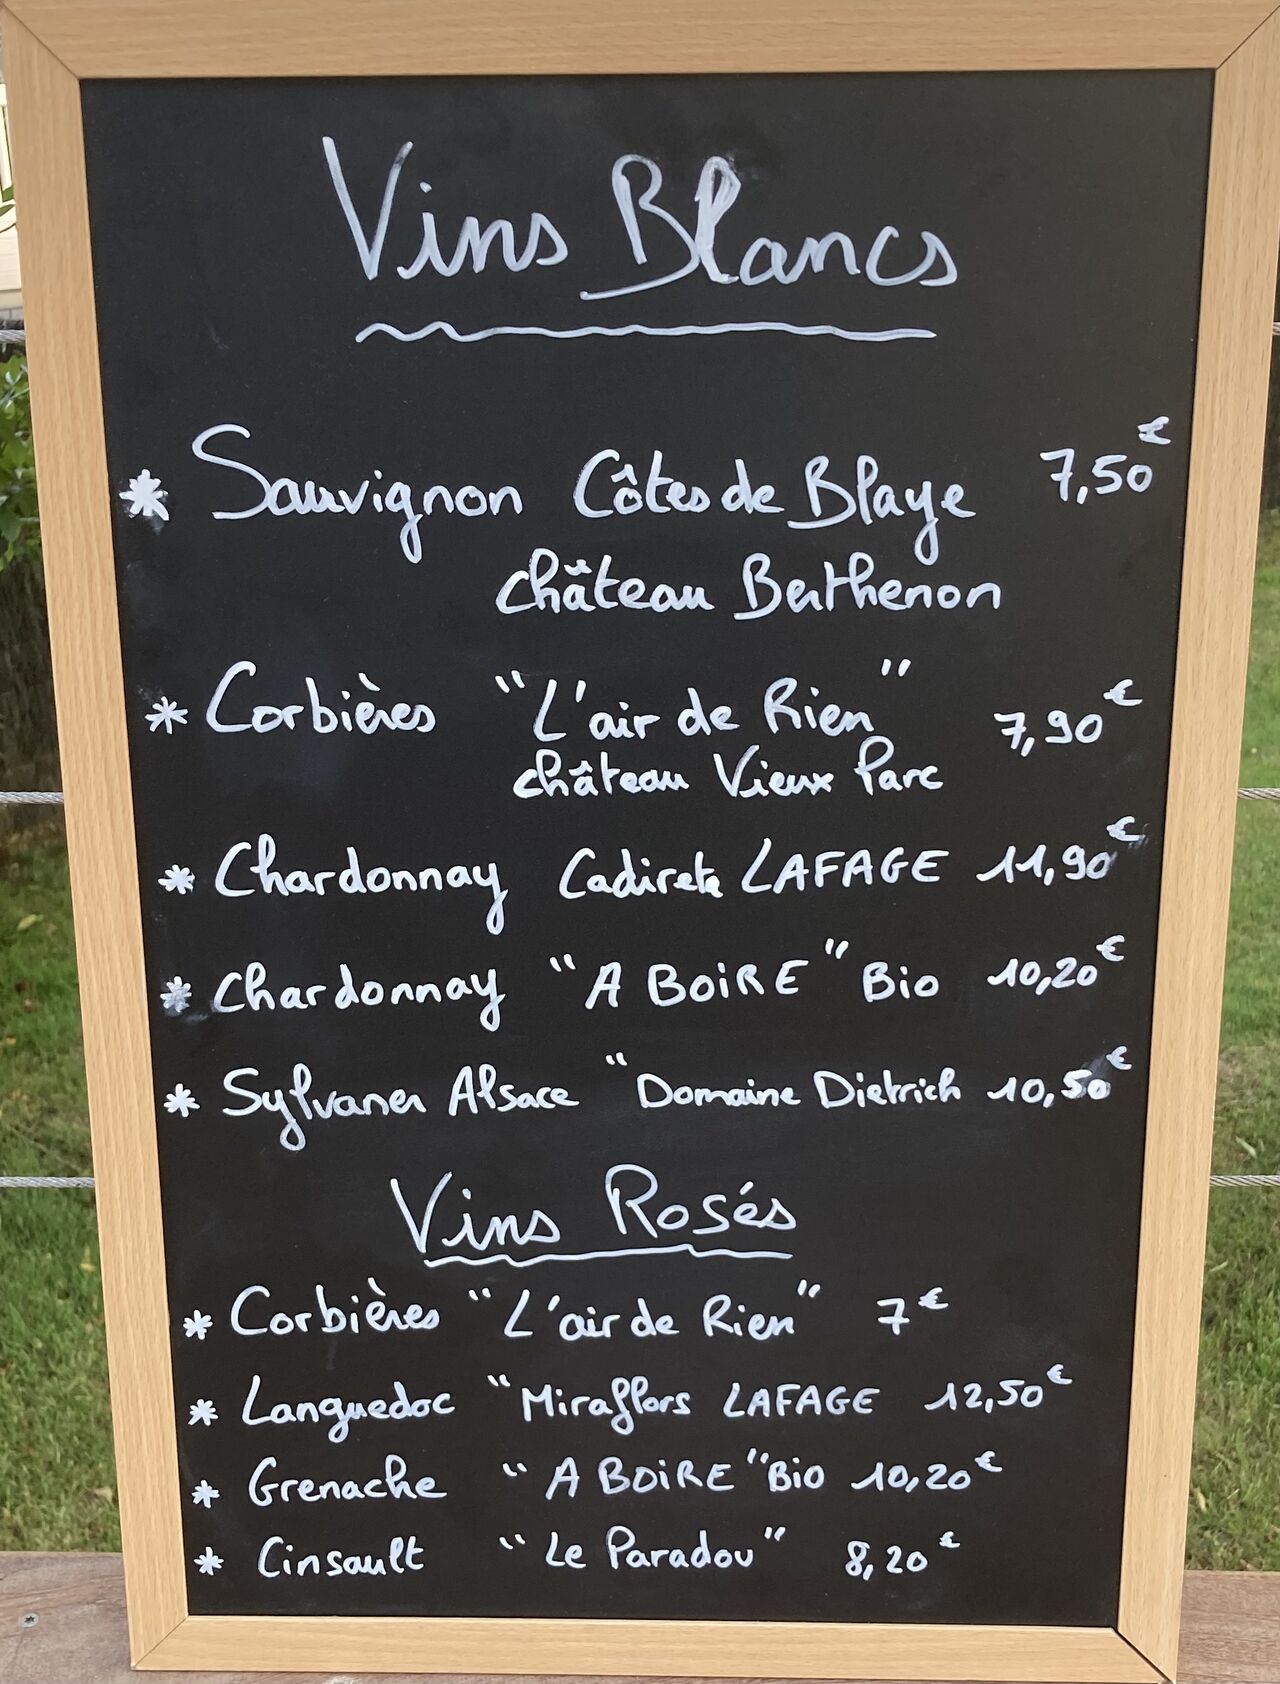 Vins Blancs
* Sauvignon Côtes de Blaye 7,50€
château Berthenon
* Corbières "L'air de Rien" 7,90€
château Vieux Parc
* Chardonnay Cadireta LAFAGE 11,90€
* Chardonnay "A BOiRE" Bio 10,20€
* Sylvaner Alsace "Domaine Dietrich 10,50€
Vins Rosés
* Corbières "L'air de Rien" 7€
* Languedoc "Miraflors LAFAGE 12,50€
* Grenache "A BOiRE" Bio 10,20€
* Cinsault "Le Paradou" 8,20€